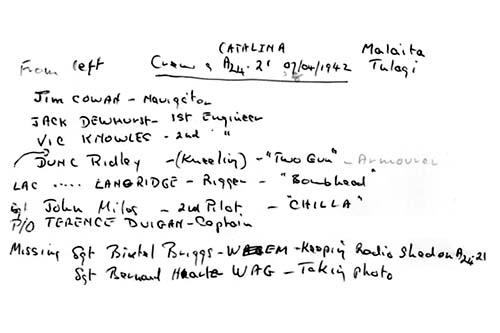 CATALINA Malaita
From left Crew of A24-21 07/04/1942 Tulagi
Jim COWAN - Navigator
JACK DEWHURST - 1st Engineer
VIC KNOWLES - 2nd "
DUNC Ridley - (Kneeling) - "Two Gun" - Armourer
LAC ..... LANGRIDGE - Rigger - "Bombhead"
Sgt John Milos - 2nd Pilot - "CHILLA"
P/O TERENCE DUIGAN - Captain
Missing Sgt Briggs - - Keeping Radio Shed on A24-21
Sgt Bernard WAG - Taking photo